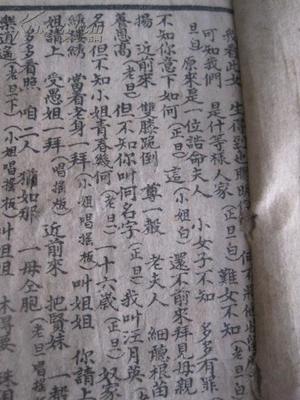 生得到也聰明(正旦白)難女不知
可知我們 是什等樣人家(正旦白)
旦白)原來是一位誥命夫人 小女子不知 多多有罪
不知你意下如何(正旦)這(小姐白)還不前來拜見母親
揚 近前來 雙膝跪倒 尊一聲 老夫人 細聽根苗
養恩高(老旦)但不知你叫何名字(正旦)我叫汪月英
名但不知小姐青春幾何(老旦)一十六歲(正旦)奴家
當看老身一拜(小姐唱摇板)叫姐姐 你請上
姐請上 受愚姐一拜(唱摇板)近前來 把賢妹一
多多看照 咱二人 猶如那 一母仝胞(老旦唱摇板)
樂逍遥(老旦下)(小姐唱摇板)叫姐姐